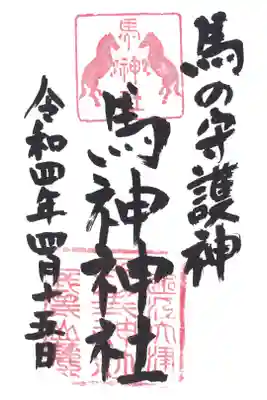 馬の守護神
馬神社
馬神神社
令和四年四月十五日